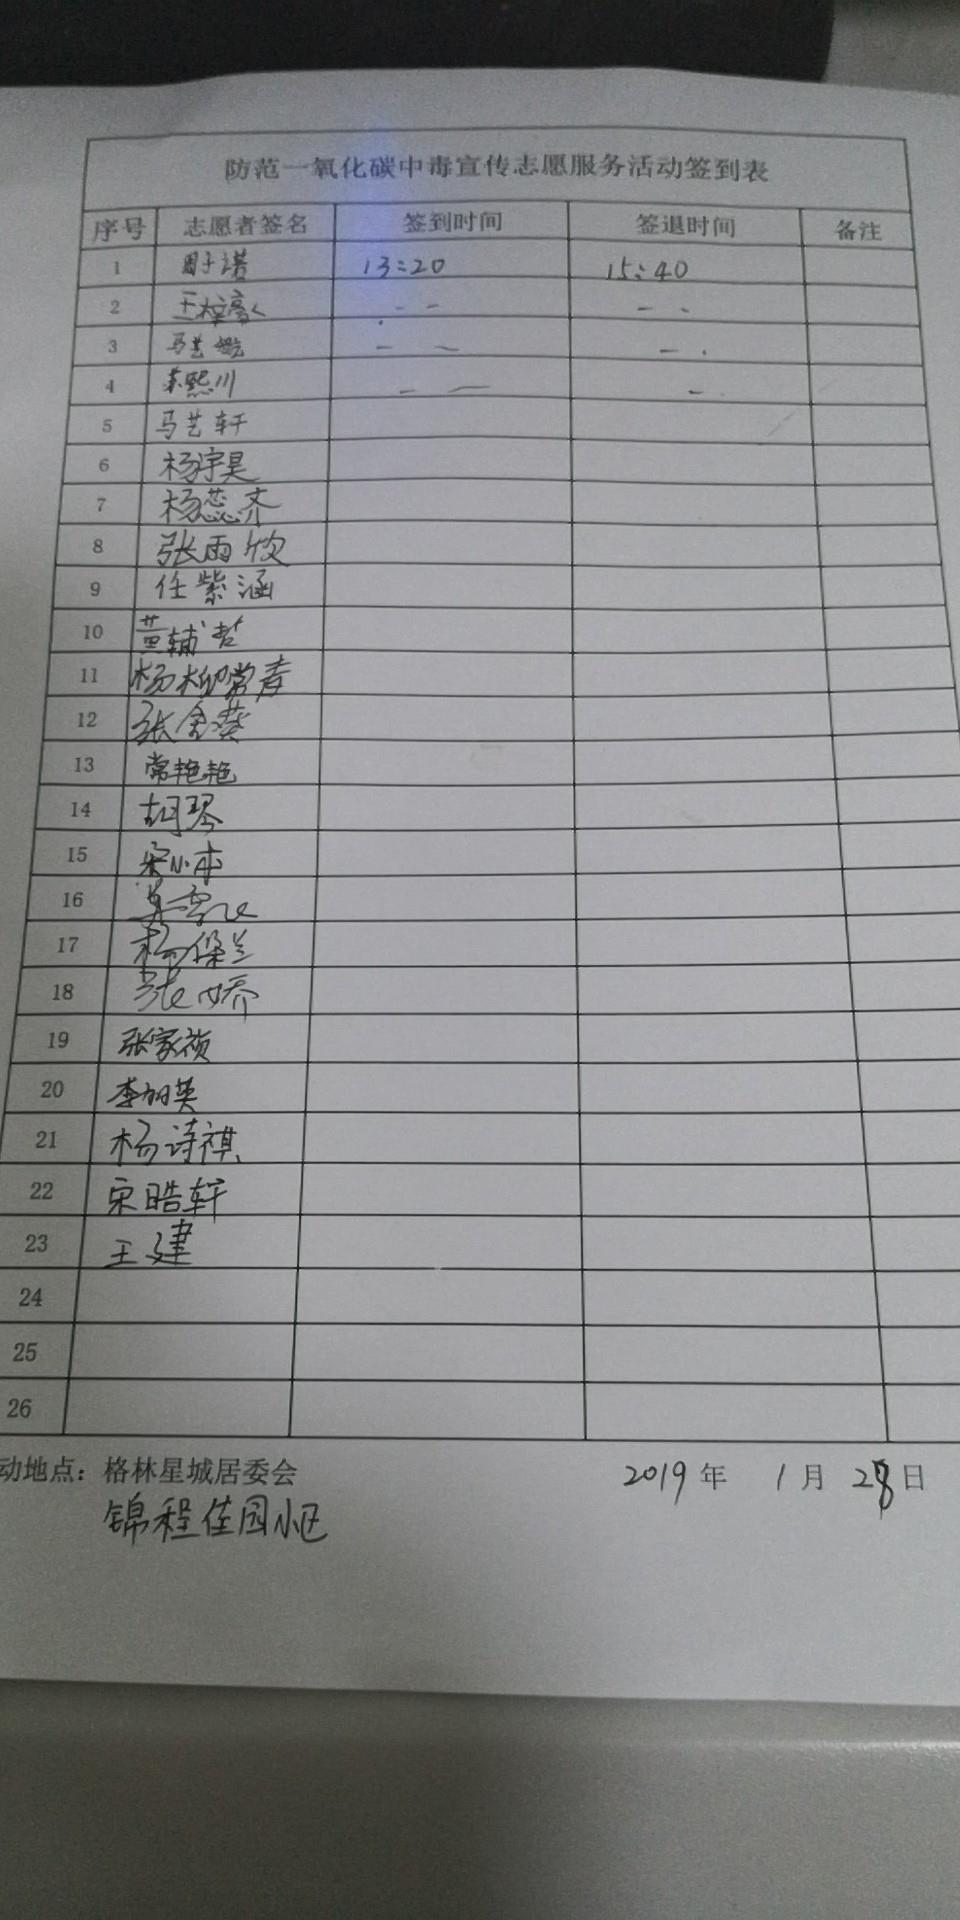 防范一氧化碳中毒宣传志愿服务活动签到表
序号 志愿者签名 签到时间 签退时间 备注
1 周子诺 13:20 15:40
2 王梓豪 - - - -
3 马艺 - - - -
4 苏熙川 - - -
5 马艺轩
6 杨宇昊
7 杨蕊齐
8 张雨欣
9 任紫涵
10 黄辅哲
11 杨柳常青
12 张含葵
13 常艳艳
14 胡琴
15 宋小本
16
17 杨保兰
18 张娇
19 张家祯
20 李明英
21 杨诗祺
22 宋晧轩
23 王建
24
25
26
动地点：格林星城居委会 2019年 1月 28日
锦程佳园小区